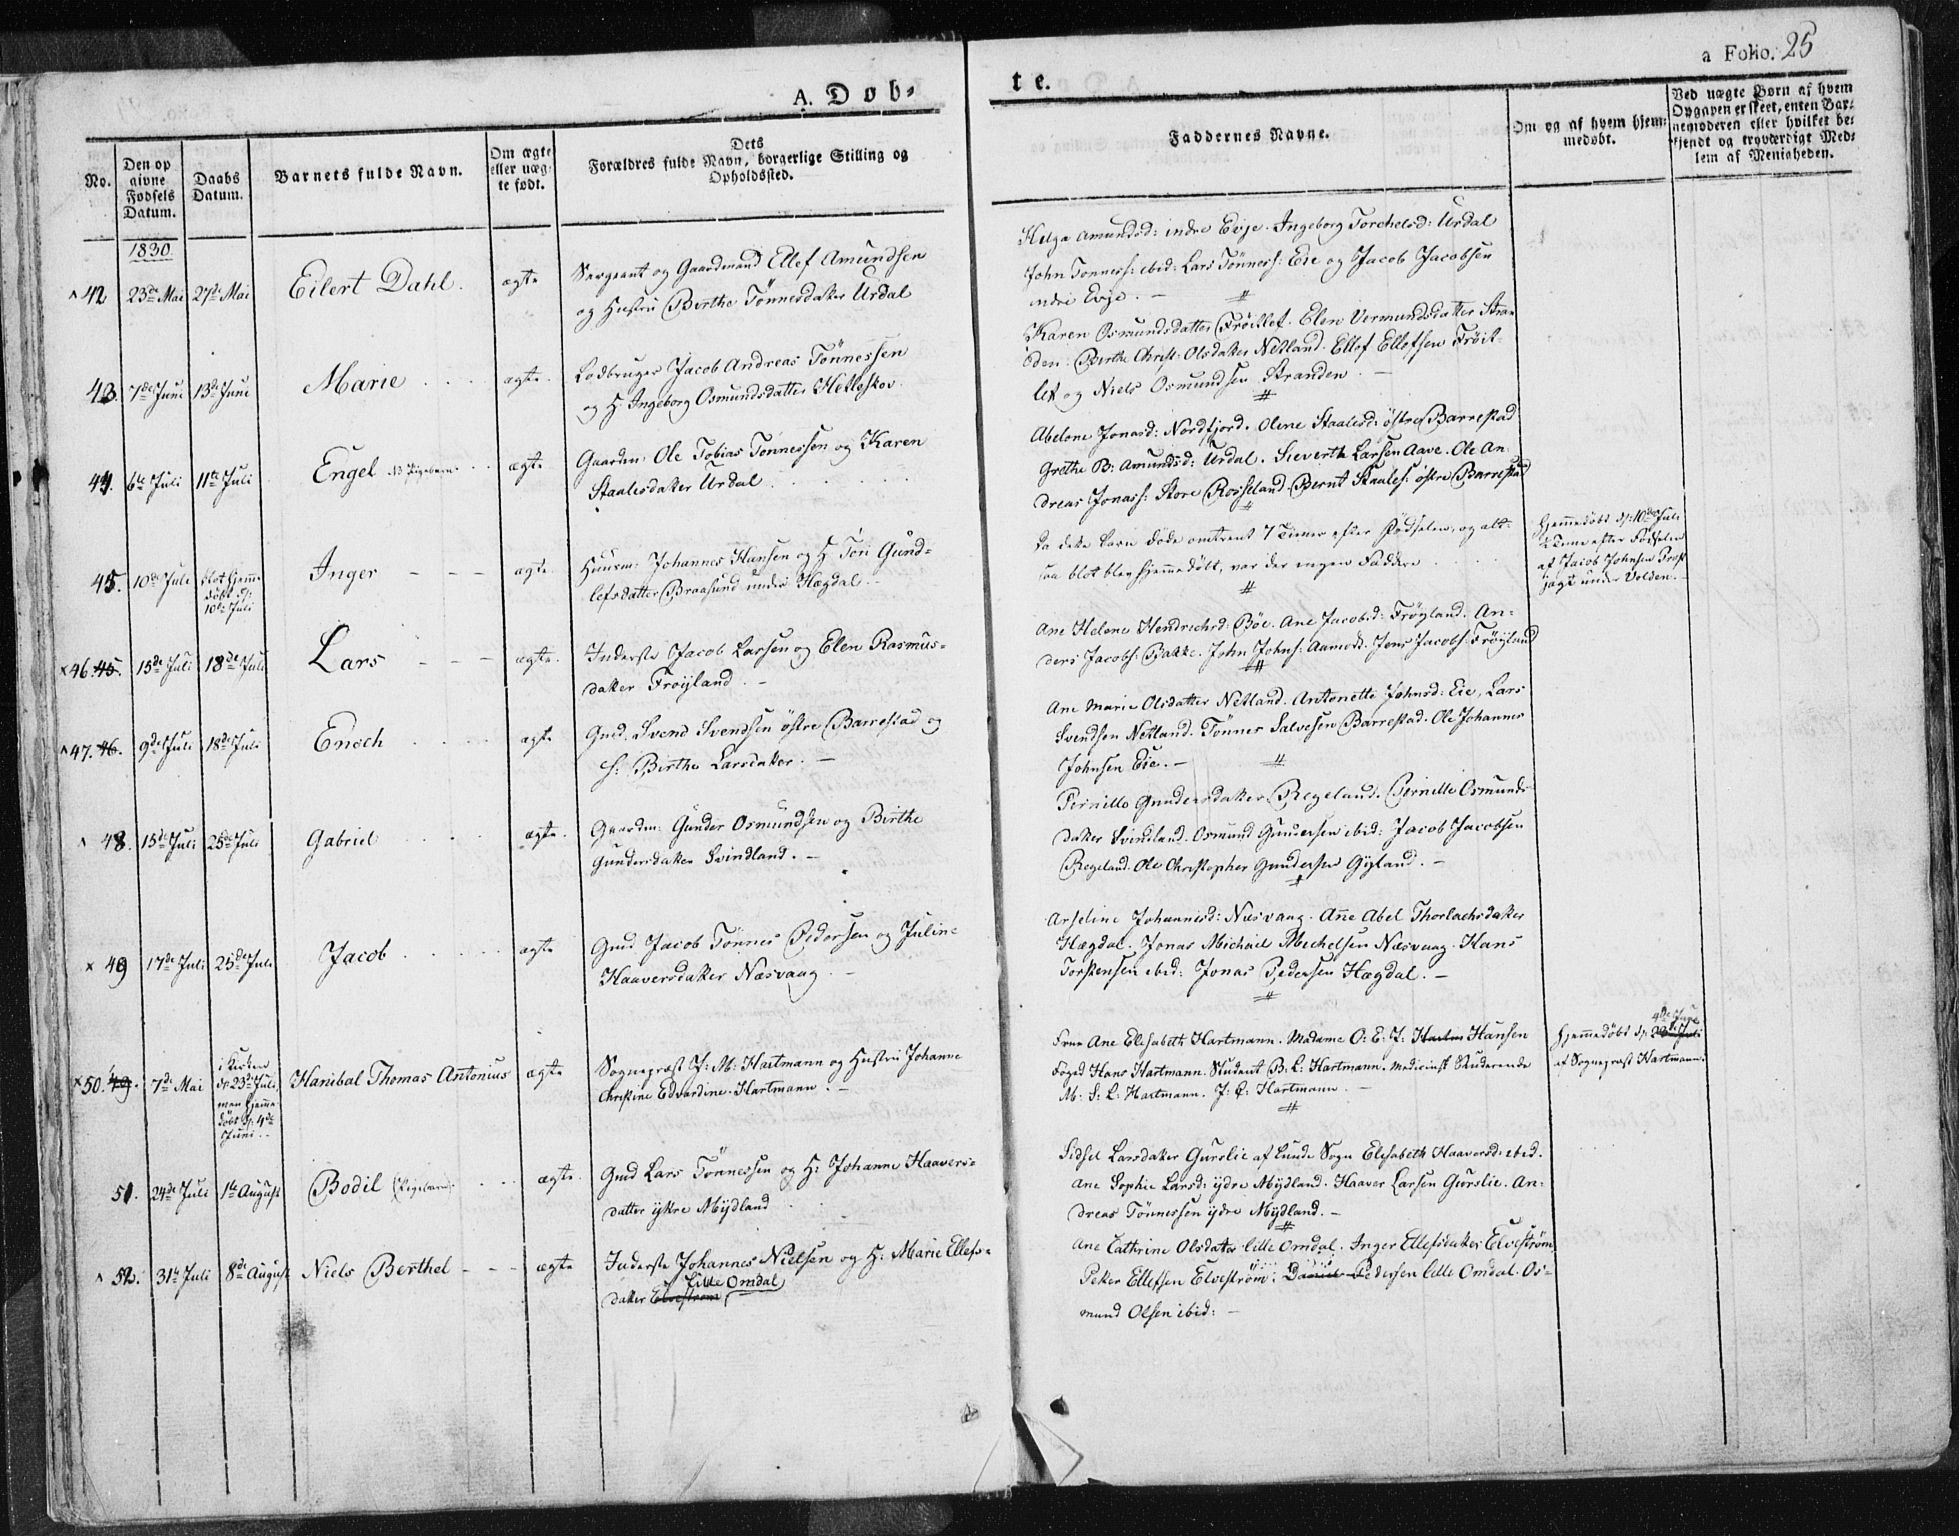 A. Døb-
te.
a Folio. 25
No.
Den op
givne
Fødsels
Datum.
Daabs
Datum.
Barnets fulde Navn.
Om ægte
eller uæg-
te født.
Dets
Forældres fulde Navn, borgerlige Stilling og
Opholdssted.
Faddernes Navne.
Om og af hvem hjem-
medøbt.
Ved uægte Børn af hvem
Opgaven er skeet, enten Bar-
nemoderen eller hvilket be-
kjendt og troværdigt Med-
lem af Menigheden.
1830
42 23de Mai 27de Mai Eilert Dahl. ægte
Sergeant og Gaardmand Ellef Amundsen
og Hustru Birthe Tønnesdatter Urdal
Helga Amundsd: indre Eeje. Ingeborg Torchelsd: Urdal
John Tønness: ibid: Lars Tønness: Eie og Jacob Jacobsen
indre Eeje. —
43. 7de Juni 13de Juni Marie ægte.
Lodbruger Jacob Andreas Tönnessen
og H Ingeborg Osmundsdatter Hetleskov.
Karen Osmundsdatter Fröitlet. Elen Vermundsdatter Stran-
den. Birthe Christ: Olsdatter Netland. Ellef Ellefsen Fröit-
let og Niels Osmundsen Stranden. —
44. 6te Juli 11te Juli Engel NB Pigebarn. ægte
Gaardm: Ole Tobias Tønnessen og Karen
Staalesdatter Urdal
Abelone Jonasd: Nordfjord. Olene Staalesd: østre Barrestad
Grethe B: Amundsd: Urdal. Sieverth Larsen Aave. Ole An-
dreas Jonass: Store Rosseland. Bernt Staales: østre Barrestad
45. 10de Juli blot hjemme-
døbt d:
10de Juli Inger ægte
Huusm: Johannes Hansen og H Tøri Gund-
lefsdatter Braasund under Hægdal. —
Da dette Barn døde omtrent 7 Timer efter Fødselen, og alt-
saa blot blev hjemmedøbt, var der ingen Faddere.
Hjemmedøbt d: 10de Juli
2 Timer efter Fødselen
af Jacob Johnsen
under Volden. —
46. 45. 15de Juli 18de Juli Lars ægte.
Inderste Jacob Larsen og Elen Rasmus-
datter Froijland. —
Ane Helene Hendrichsd: Böe. Ane Jacobsd: Fröyland. An-
ders Jacobs: Bakke. John Johns: Aamodt. Jens Jacobs: Fröyland
47. 46. 9de Juli 18de Juli Enoch ægte
Gmd. Svend Svendsen østre Barrestad og
H: Birthe Larsdatter. —
Ane Marie Olsdatter Netland. Antonette Johnsd: Eie, Lars
Svendsen Netland. Tønnes Salvesen Barrestad. Ole Johannes
Johnsen Eie. —
48. 15de Juli 25de Juli Gabriel ægte.
Gaardm: Gunder Osmundsen og Birthe
Gundersdatter Svindland. —
Pernille Gundersdatter Regeland. Pernille Osmunds-
datter Svindland. Osmund Gundersen ibid: Jacob Jacobsen
Regeland. Ole Christopher Gundersen Gyland. —
49 17de Juli 25de Juli Jacob ægte
Gmd Jacob Tønnes Pedersen og Juline
Haaversdatter Næsvaag. —
Arseline Johannesd: Næsvaag. Aṅe Abel Thorlachsdatter
Hægdal. Jonas Michael Michelsen Næsvaag. Hans
Torstensen ibid: Jonas Pedersen Hægdal. —
50. 49. 7de Mai i Kirken
d: 25de Juli,
men hjemme-
døbt d: 4de
Juni. Hanibal Thomas Antonius ægte
Sognepræst J: M: Hartmann og Hustru Johanne
Christine Edvardine Hartmann. —
Frue Ane Elisabeth Hartmann. Madame O: E: J: Hansen
Foged Hans Hartmann. Student B: L: Hartmann. Medicinsk Studerende
M: S: L: Hartmann. J: C: Hartmann. —
4de Juni
Hjemmedøbt d:
af Sognepræst Hartmann.
51. 24de Juli 1te August Bodil (Pigebarn) ægte.
Gmd Lars Tönnessen og H: Johanne Haavers-
datter ytre Mydland
Sidsel Larsdatter Gurslie af Lunde Sogn Elisabeth Haaversd: ibid.
Ane Sophie Larsd: ydre Mydland. Haaver Larsen Gurslie. An-
dreas Tönnessen ydre Mydland. —
52. 31te Juli 8de August Niels Berthel ægte
Inderste Johannes Nielsen og H: Marie Ellefs-
datter Elvestrøm Lille Omdal
Ane Cathrine Olsdatter lille Omdal. Inger Ellefsdatter Elveström
Peter Ellefsen Elveström. Daniel Pedersen lille Omdal. Os-
mund Olsen ibid: —